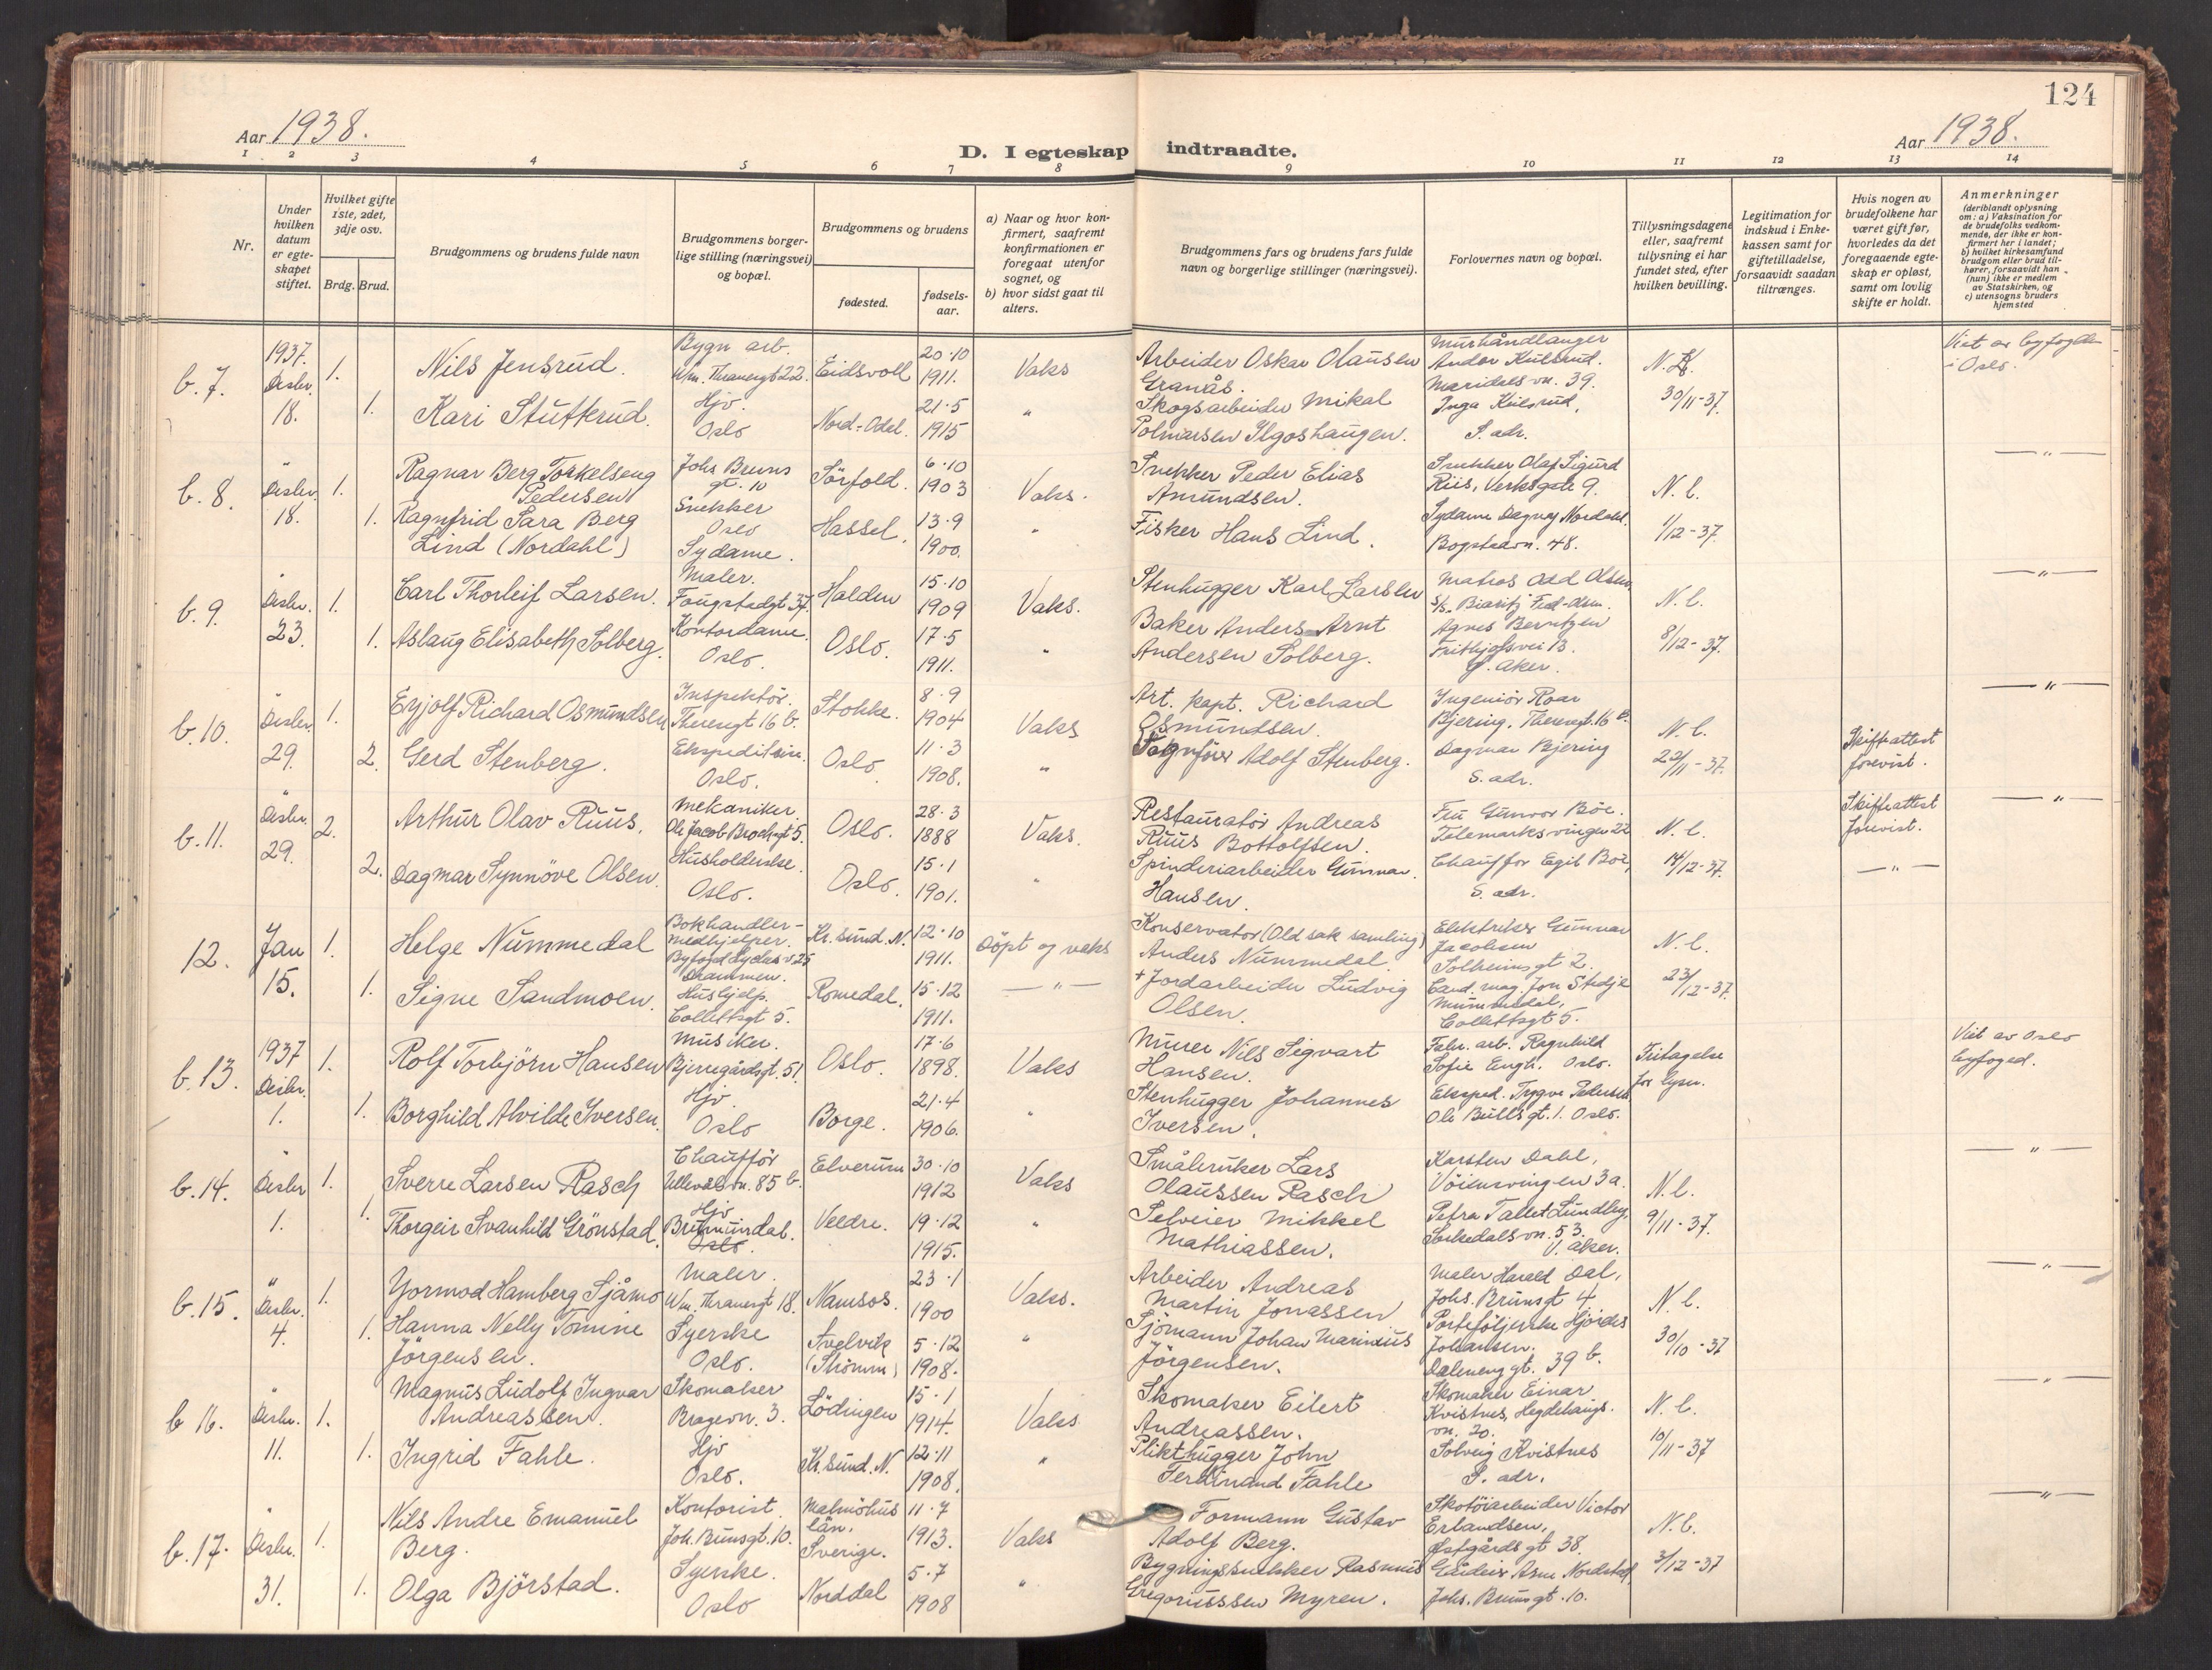 124
Aar 1938.
D. I egteskap indtraadte.
Aar 1938.
1 2 3 4 5 6 7 8 9 10 11 12 13 14
Nr.
Under hvilken datum er egteskapet stiftet.
Hvilket gifte 1ste, 2det, 3dje osv.
Brdg. Brud.
Brudgommens og brudens fulde navn
Brudgommens borgerlige stilling (næringsvei) og bopæl.
Brudgommens og brudens
fødested.
fødselsaar.
a) Naar og hvor konfirmert, saafremt konfirmationen er foregaat utenfor sognet, og
b) hvor sidst gaat til alters.
Brudgommens fars og brudens fars fulde navn og borgerlige stillinger (næringsvei).
Forlovernes navn og bopæl.
Tillysningsdagene eller, saafremt tillysning ei har fundet sted, efter hvilken bevilling.
Legitimation for indskud i Enkekassen samt for giftetilladelse, forsaavidt saadan tiltrænges.
Hvis nogen av brudefolkene har været gift før, hvorledes da det foregaaende egteskap er opløst, samt om lovlig skifte er holdt.
Anmerkninger
(deriblandt oplysning om: a) Vaksination for de brudefolks vedkommende, der ikke er konfirmert her i landet; b) hvilket kirkesamfund brudgom eller brud tilhører, forsaavidt han (hun) ikke er medlem av Statskirken, og c) utensogns bruders hjemsted
b. 7
1937.
Desbr.
18.
1.
1.
Nils Jensrud.
Kari Stutterud.
Bygn arb.
Wm. Thranesgt 22.
Hjv.
Oslo
Eidsvoll
Nord-Odal.
20-10
1911.
21-5
1915
Vaks
"
Arbeider Oskar Olausen
Granås.
Skogsarbeider Mikal
Murhåndlanger
Maridals vn. 39.
S. adr.
30/11-37.
Viet av byfogden
i Oslo.
b. 8.
"
Desbr.
18.
1.
1.
Ragnar Berg Torkelseng
Pedersen
Ragnfrid Sara Berg
Lind (Nordahl)
Johs Bruns
gt. 10
Snekker
Oslo
Sydame.
Sörfold.
Hassel.
6-10
1903
13-9
1900.
Vaks.
"
Snekker Peder Elias
Amundsen.
Fisker Hans Lind.
Snekker Olaf Sigurd
Riis, Verksgate 9.
Sydame Dagny Nordahl.
Bogstadvn. 48.
N. l.
1/12-37.
— " —
b. 9.
"
Desbr.
23.
1.
1.
Carl Thorleif Larsen.
Aslaug Elisabeth Solberg.
Maler.
Fougstadgt 37.
Kontordame.
Oslo.
Halden
Oslo.
15-10
1909
17-5
1911.
Vaks.
"
Stenhugger Karl Larsen
Baker Anders Arnt
Andersen Solberg.
Matros Odd Olsen,
Agnes Berntzen
Frithjofsvei 13.
V. Aker.
N. l.
8/12-37.
— " —
b. 10.
"
Desbr.
29.
1.
2.
Eyjolf Richard Osmundsen
Gerd Stenberg.
Inspektör.
Theresgt 16 b.
Ekspeditrise.
Oslo.
Stokke.
Oslo
8-9
1904
11-3
1908.
Vaks
"
Art. kapt. Richard
Osmundsen.
Adolf Stenberg.
Ingeniör Roar
Bjering. Theresgt. 16 b.
Dagmar Bjering
S. adr.
N. l.
22/11-37.
Skifteattest
forevist.
— " —
b. 11.
"
Desbr.
29.
2.
2.
Arthur Olav Ruus.
Dagmar Synnöve Olsen.
Mekaniker.
Ole Jacob Brochsgt 5.
Husholderske.
Oslo.
Oslo.
Oslo.
28-3
1888
15-1
1901.
Vaks.
"
Restauratör Andreas
Ruus Bottolfsen.
Spinderiarbeider Gunnar
Hansen.
Fru Gunvor Böe.
Telemarksvingen 22
Chauffor Egil Boe,
S. adr.
N. l.
14/12-37.
Skifteattest
forevist.
— " —
— " —
12.
Jan
15.
1.
1.
Helge Nummedal
Signe Sandmoen.
Bokhandler-
medhjelper.
Drammen.
Hushjelp.
Collettsgt 5.
Kr. sund. N.
Romedal.
12-10
1911.
15-12
1911.
Döpt og vaks
— " —
Konservator (Oldsak samling)
Anders Nummedal.
+ Jordarbeider Ludvig
Olsen.
Elektriker Gunnar
Jacobsen
Solheimsgt 2.
Cand. mag. Jon Stedje
Nummedal,
Collettsgt 5.
N. l.
23/12-37.
b. 13.
1937
Desbr.
1.
1.
1.
Rolf Torbjörn Hansen
Borghild Alvilde Iversen.
Musiker.
Bjerregårdsgt. 51.
Hjv.
Oslo
Oslo.
Borge.
17-6
1898.
21-4
1906.
Vaks
"
Murer Nils Sigvart
Hansen.
Stenhugger Johannes
Iversen.
Fabr. arb. Ragnhild
Sofie Engh. Oslo.
Eksped. Trygve Pedersen
Ole Bullsgt. 1. Oslo.
Fritagelse
for lysn.
Viet av Oslo
byfoged.
b. 14.
"
Desbr
1.
1.
1.
Sverre Larsen Rasch
Thorgeir Svanhild Grönstad.
Chaufför
Ullevålsvn. 85 b.
Hjv
Brumunddal.
Oslo.
Elverum
Veldre.
30-10
1912
19-12
1915.
Vaks
"
Småbruker Lars
Olaussen Rasch
Selveier Mikkel
Mathiassen.
Karsten Dahl,
Vöiensvingen 3a.
Petra Tallet Lundby,
Sörkedalsvn. 53.
V. Aker.
N. l.
9/11-37.
— " —
b. 15.
"
Desbr.
4.
1.
1.
Yormod Hamberg Sjåmo
Hanna Nelly Tomine
Jörgensen.
Maler.
Wm. Thranesgt 18.
Syerske
Oslo.
Namsos.
Svelvik
(Strömm)
23-1
1900
5-12
1908.
Vaks.
"
Arbeider Andreas
Martin Jonassen
Sjömann Johan Marinius
Jörgensen.
Maler Harald Dal,
Johs. Brunsgt 4
Porteföljerske Hjördis
Johansen.
Dælenenggt. 39 b.
N. l.
30/10-37
— " —
b 16.
"
Desbr.
11.
1.
1.
Magnus Ludolf Ingvar
Andreassen.
Ingrid Fahle.
Skomaker
Bragevn. 3.
Hjv
Oslo.
Lödingen
Kr. sund. N.
15-1
1914.
12-11
1908.
Vaks
"
Skomaker Eilert
Andreassen.
Plikthugger John
Ferdinand Fahle
Skomaker Einar
Kvistnes, Hegdehaugs-
vn. 20.
Solveig Kvistnes
S. adr.
N. l.
10/11-37
— " —
b. 17.
"
Desbr.
31.
1.
1.
Nils Andre Emanuel
Berg.
Olga Björstad.
Kontorist.
Joh. Brunsgt. 10.
Syerske.
Oslo
Malmöhus
län.
Sverige.
Norddal
11-7
1913.
5-7
1908
Vaks
"
Formann Gustav
Adolf Berg.
Bygningssnekker Rasmus
Gregoriussen Myren.
Skotöiarbeider Victor
Erlandsen,
Østgårds gt 38.
Johs. Brunsgt. 10.
N. l.
3/12-37
— " —